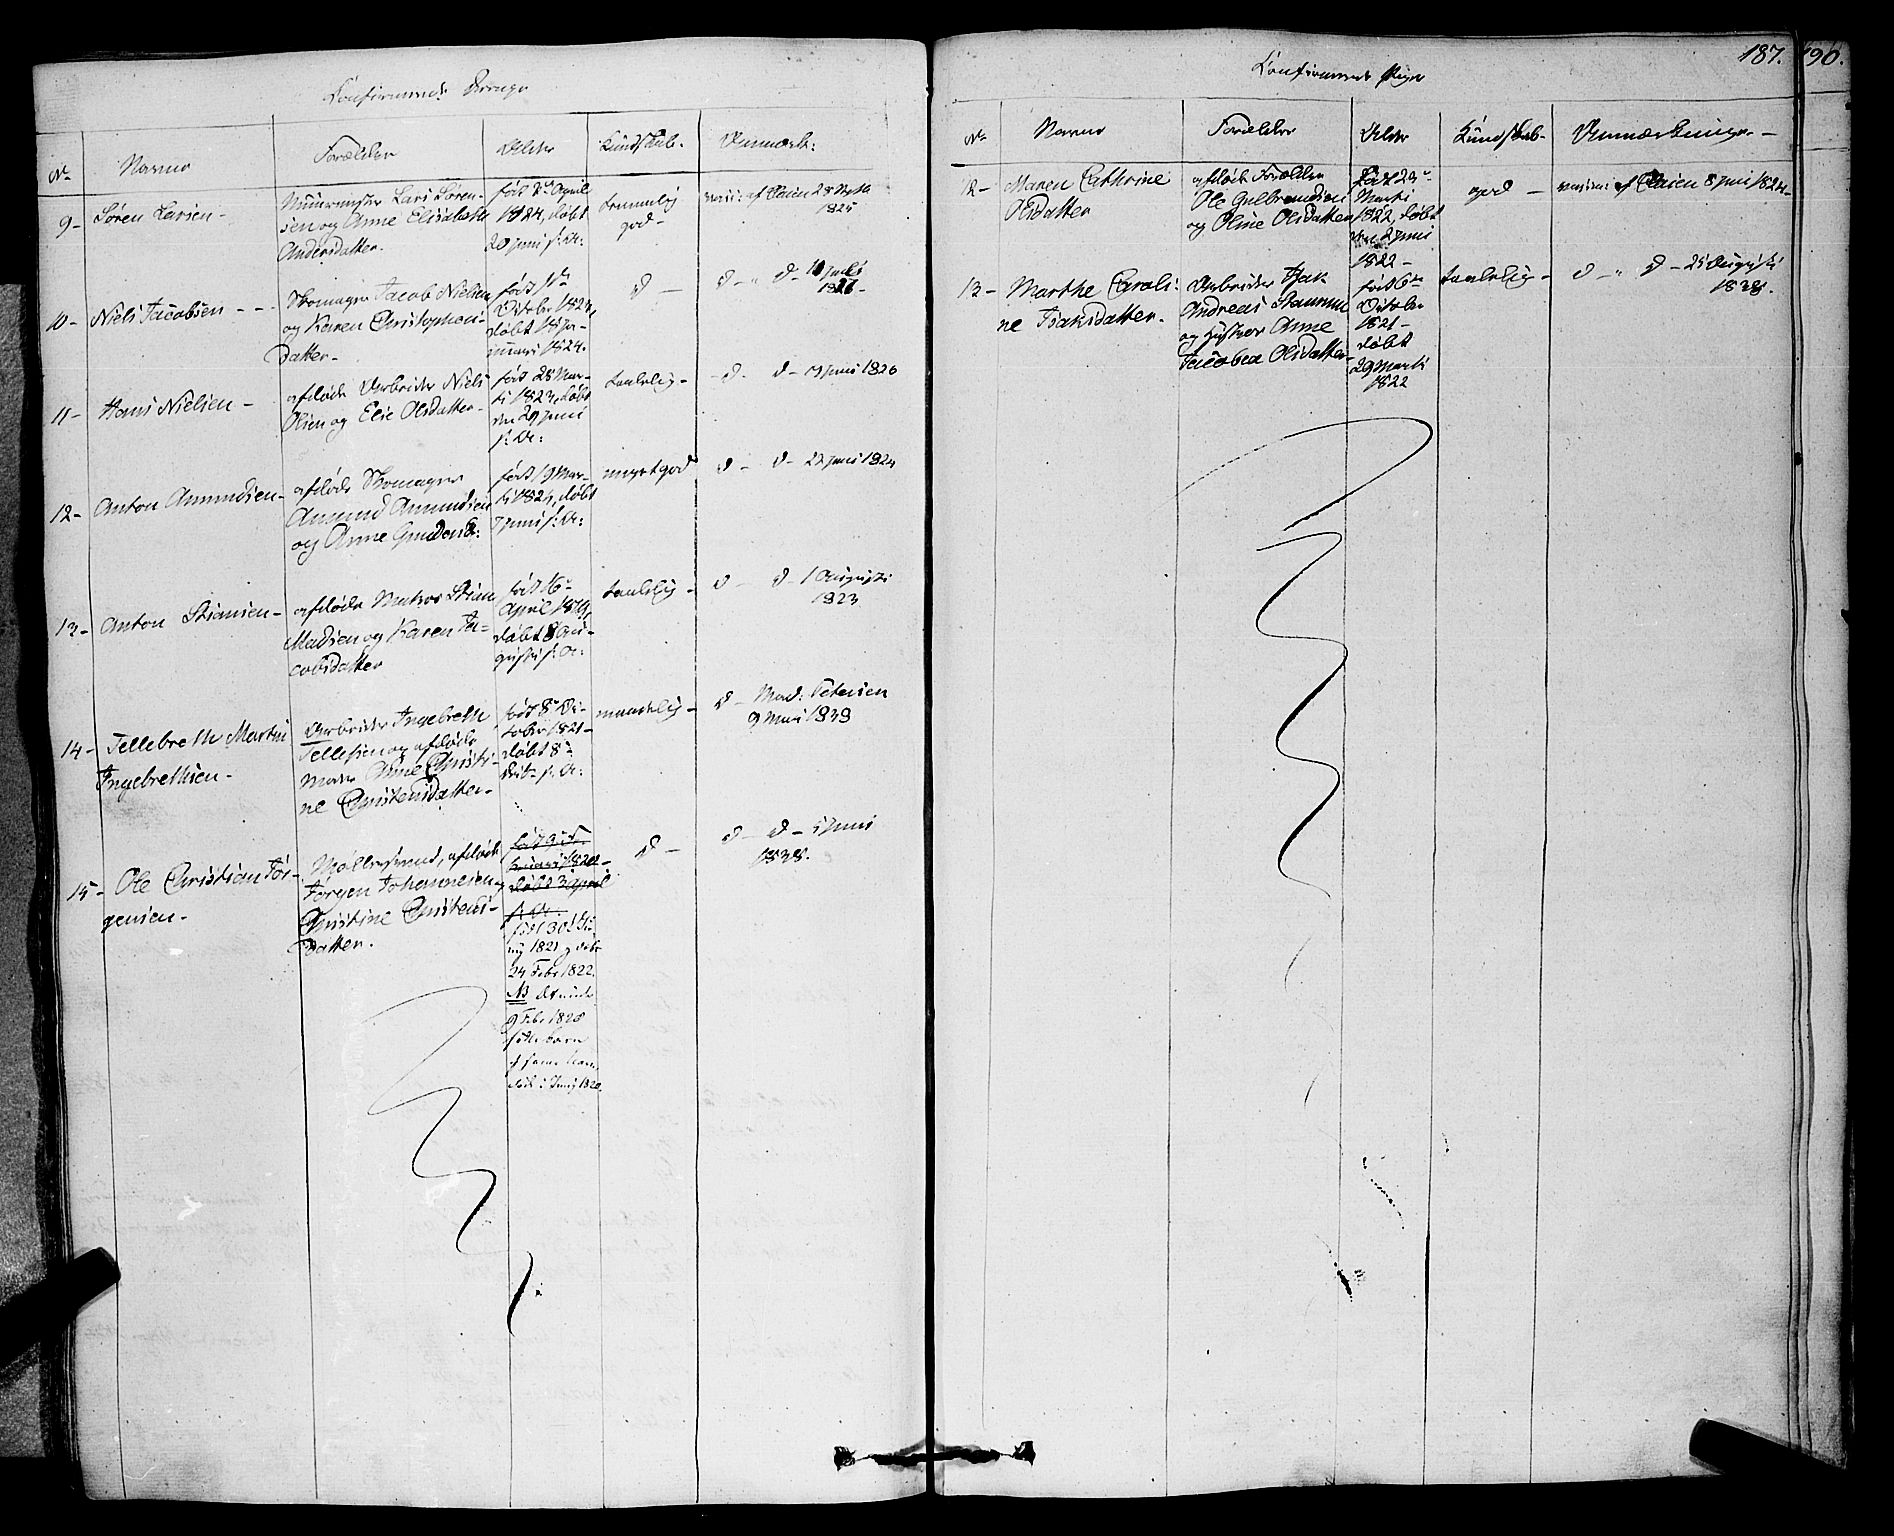 Confirmerede Drenge
No
Navne
Forældre
Alder
Kundskab.
Anmærk:
9-
Søren Larsen-
Muurmester Lars Søren-
sen og Anne Elisabeth
Andersdatter.
født April
1824, døbt
20 juni s: A:
temmelig
god-
vacc: af Thaulow
1825
10-
Niels Jacobsen - -
Skomager Jacob Nielsen
og Karen Christophers-
datter-
født
October 1823,
døbt 18 ja-
nuari 1824.
d -
d - " d -
11-
Hans Nielsen -
afdøde Arbeider Niels
Olsen og Elie Olsdatter-
født 28 Mar-
ti 1823, døbt
den 29 juni
s: A:
taalelig-
- d - d - juni 1826
12-
Anton Amundsen-
afdøde Skomager
Amund Amundsen
og Anne Gundersd:
født 19 Mar-
ti 1824, døbt
7 juni s: A:
meget god
d - d - 22 juni 1824
13-
Anton Stiansen-
afdøde Matros Stian
Madsen og Karen Ja-
cobsdatter
født 16
April
døbt 8 Au-
gusti s: A:
taalelig-
d - d - 1 Augusti
1823
14-
Tellebreth Martin
Ingebrethsen-
Arbeider Ingebreth
Tellefsen og afdøde
Anne Christi-
ne Christensdatter-
født 8 Oc-
tober 1821-
døbt 8
s: A:
maadelig-
d - Mad: Petersen
9 Mai 1839
15-
Ole Christian Jør-
gensen-
Møllersvend, afdøde
Jørgen Johannesen og
Christine Christens-
datter.
født 9 Fe-
bruari 1820-
døbt 3 April
s: A:
født 30
1821 og døbt
24 Febr 1822.
NB det
9 Febr 1820
fødte barn
af samme Navn
døde i Junij 1820.
d -
d - d - 5 juni
1838.
Confirmerede Piger
187.
190.
No
Navne
Forældre
Alder
Kundskab-
Anmærkninger-
12-
Maren Cathrine
Olsdatter
afdøde Forældre
Ole Gulbrandsen
og Oline Olsdatter
født 23
Marti
1822, døbt
den 2 juni
1822-
god -
vacc: af Thaulow 8 juni 1824-
13-
Marthe Caroli:
ne Isaksdatter.
Arbeider Isak
Andreas
og hustroe Anne
Jacobea Olsdatter-
født 6
October
1821-
døbt
29 Marti
1822
taalelig-
d - " d - 25 Augusti
1838.